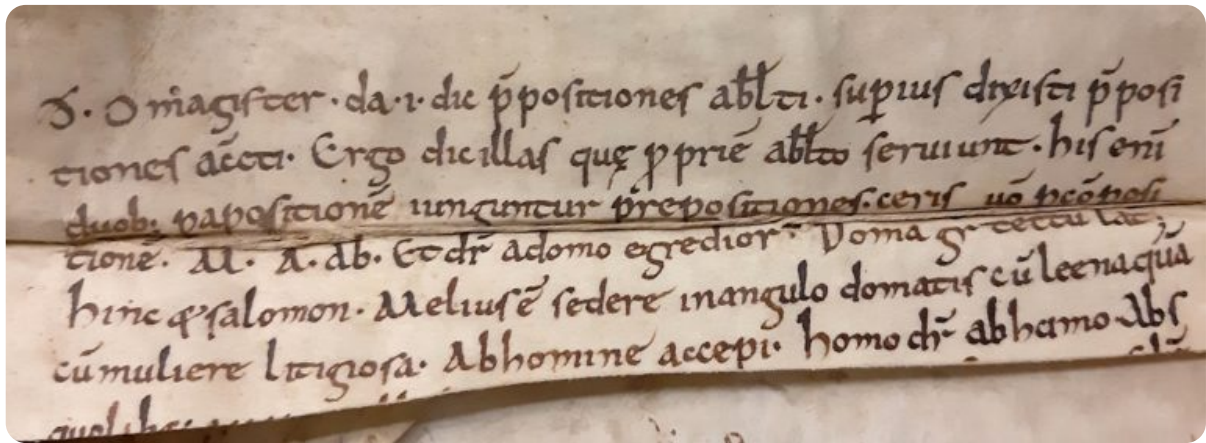 D. O magister · da · i · dic p̄positiones abl̄ti · sup̱ius dixisti p̄posi
tiones acc̄ti · Ergo dic illas quę ꝓpriē abl̄to seruiunt · his eni̅
duob; p̱ apositionē iunguntur prepositiones · ceris uō ꝑ cōposi
tionē · M · A · Ab · Et dr̄ adomo egredior · Doma gr̄ tectū lat;
hinc salomon · Melius ē sedere in angulo domatis cū leena quā
cū muliere litigiosa · Ab homine accepi · homo dr̄ ab humo · Abs
quolib